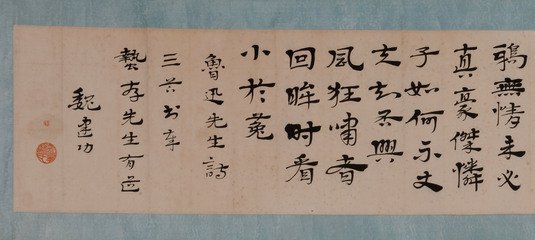 鴉無情未必
真豪傑憐
子如何不丈
夫知否興
風狂嘯者
回眸時看
小於菟
魯迅先生詩
三首書奉
藝先生有道
魏建功